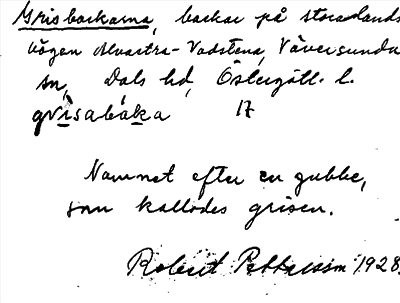 Grisbackarna, backar på stora lands
vägen Alvastra-Vadstena, Väversunda
sn, Dals hd, Östergötl. l.
grisabáka 17
Namnet efter en gubbe,
som kallades grisen.
Robert Pettersson 1928.